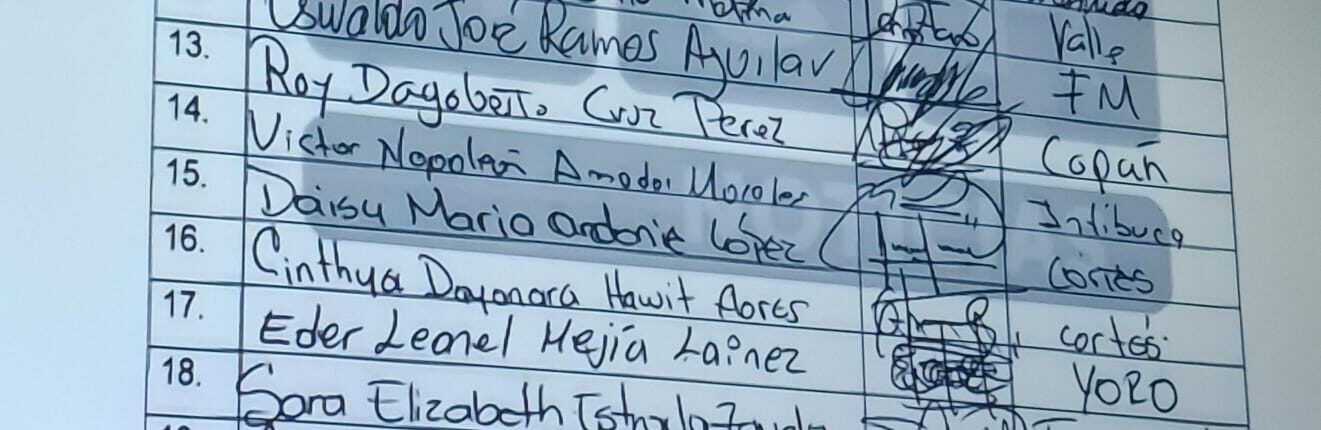 13. Oswaldo José Ramos Aguilar Valle
14. Roy Dagoberto Cruz Perez FM
15. Victor Napoleón Amador Morales Copán
16. Daisy Maria ardonie López Intibuca
17. Cinthya Dayonara Hawit flores Cortes
18. Eder Leonel Mejía Laínez cortés
Sara Elizabeth YORO